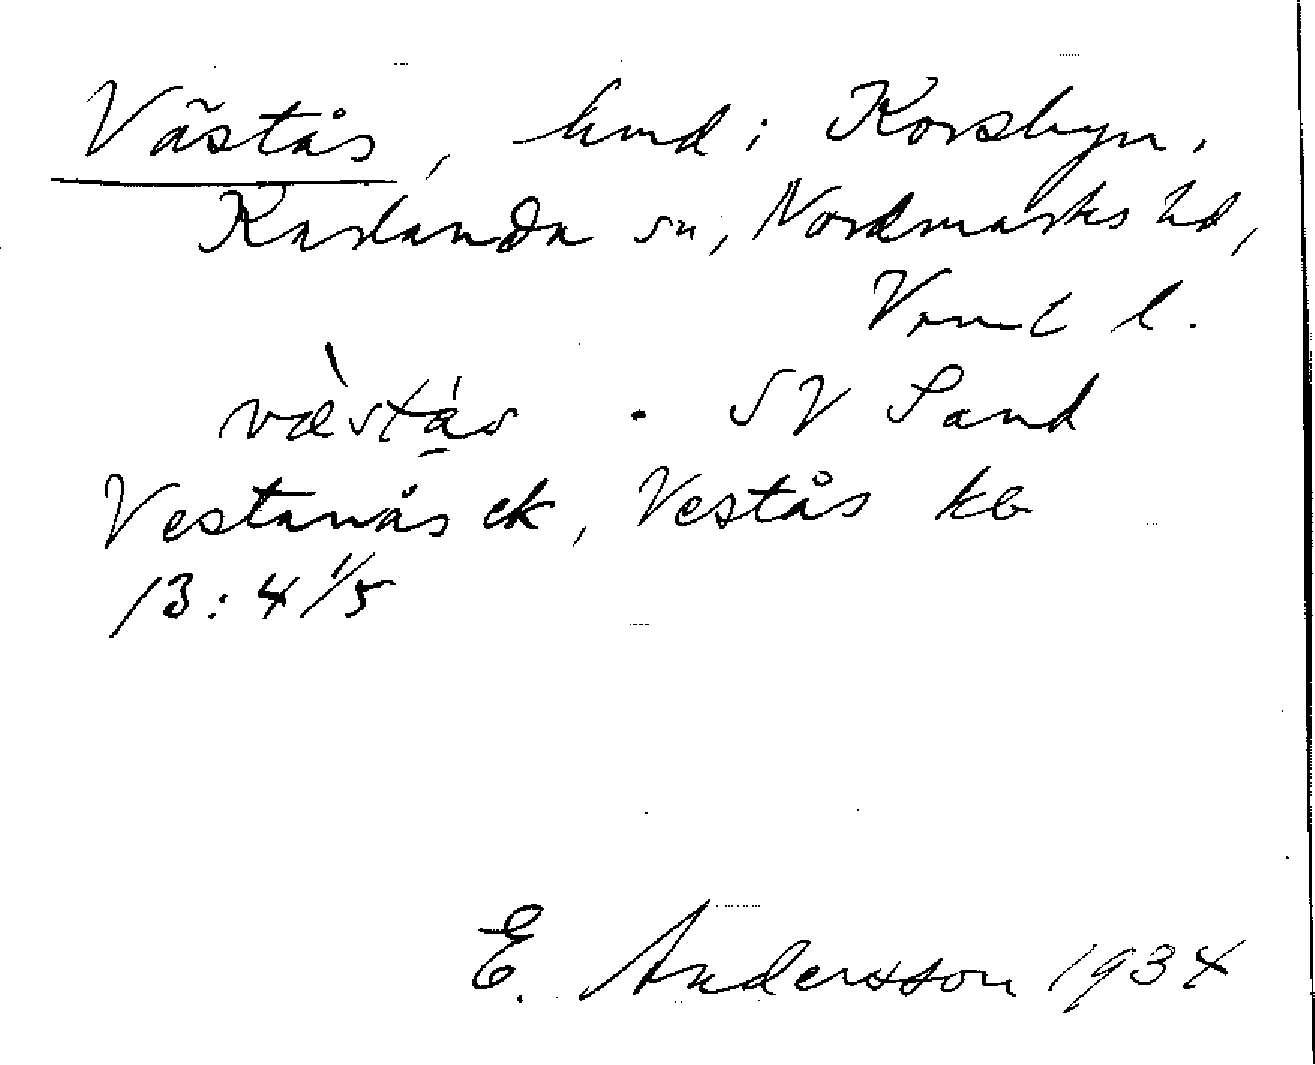 Västås, hmd i Korsbyn,
Karlanda sn, Nordmarks hd,
Vrml l.
væ̀stǻs · SV Sand
Vestanås ek, Vestås kb
13:4 1/5
E. Andersson 1934